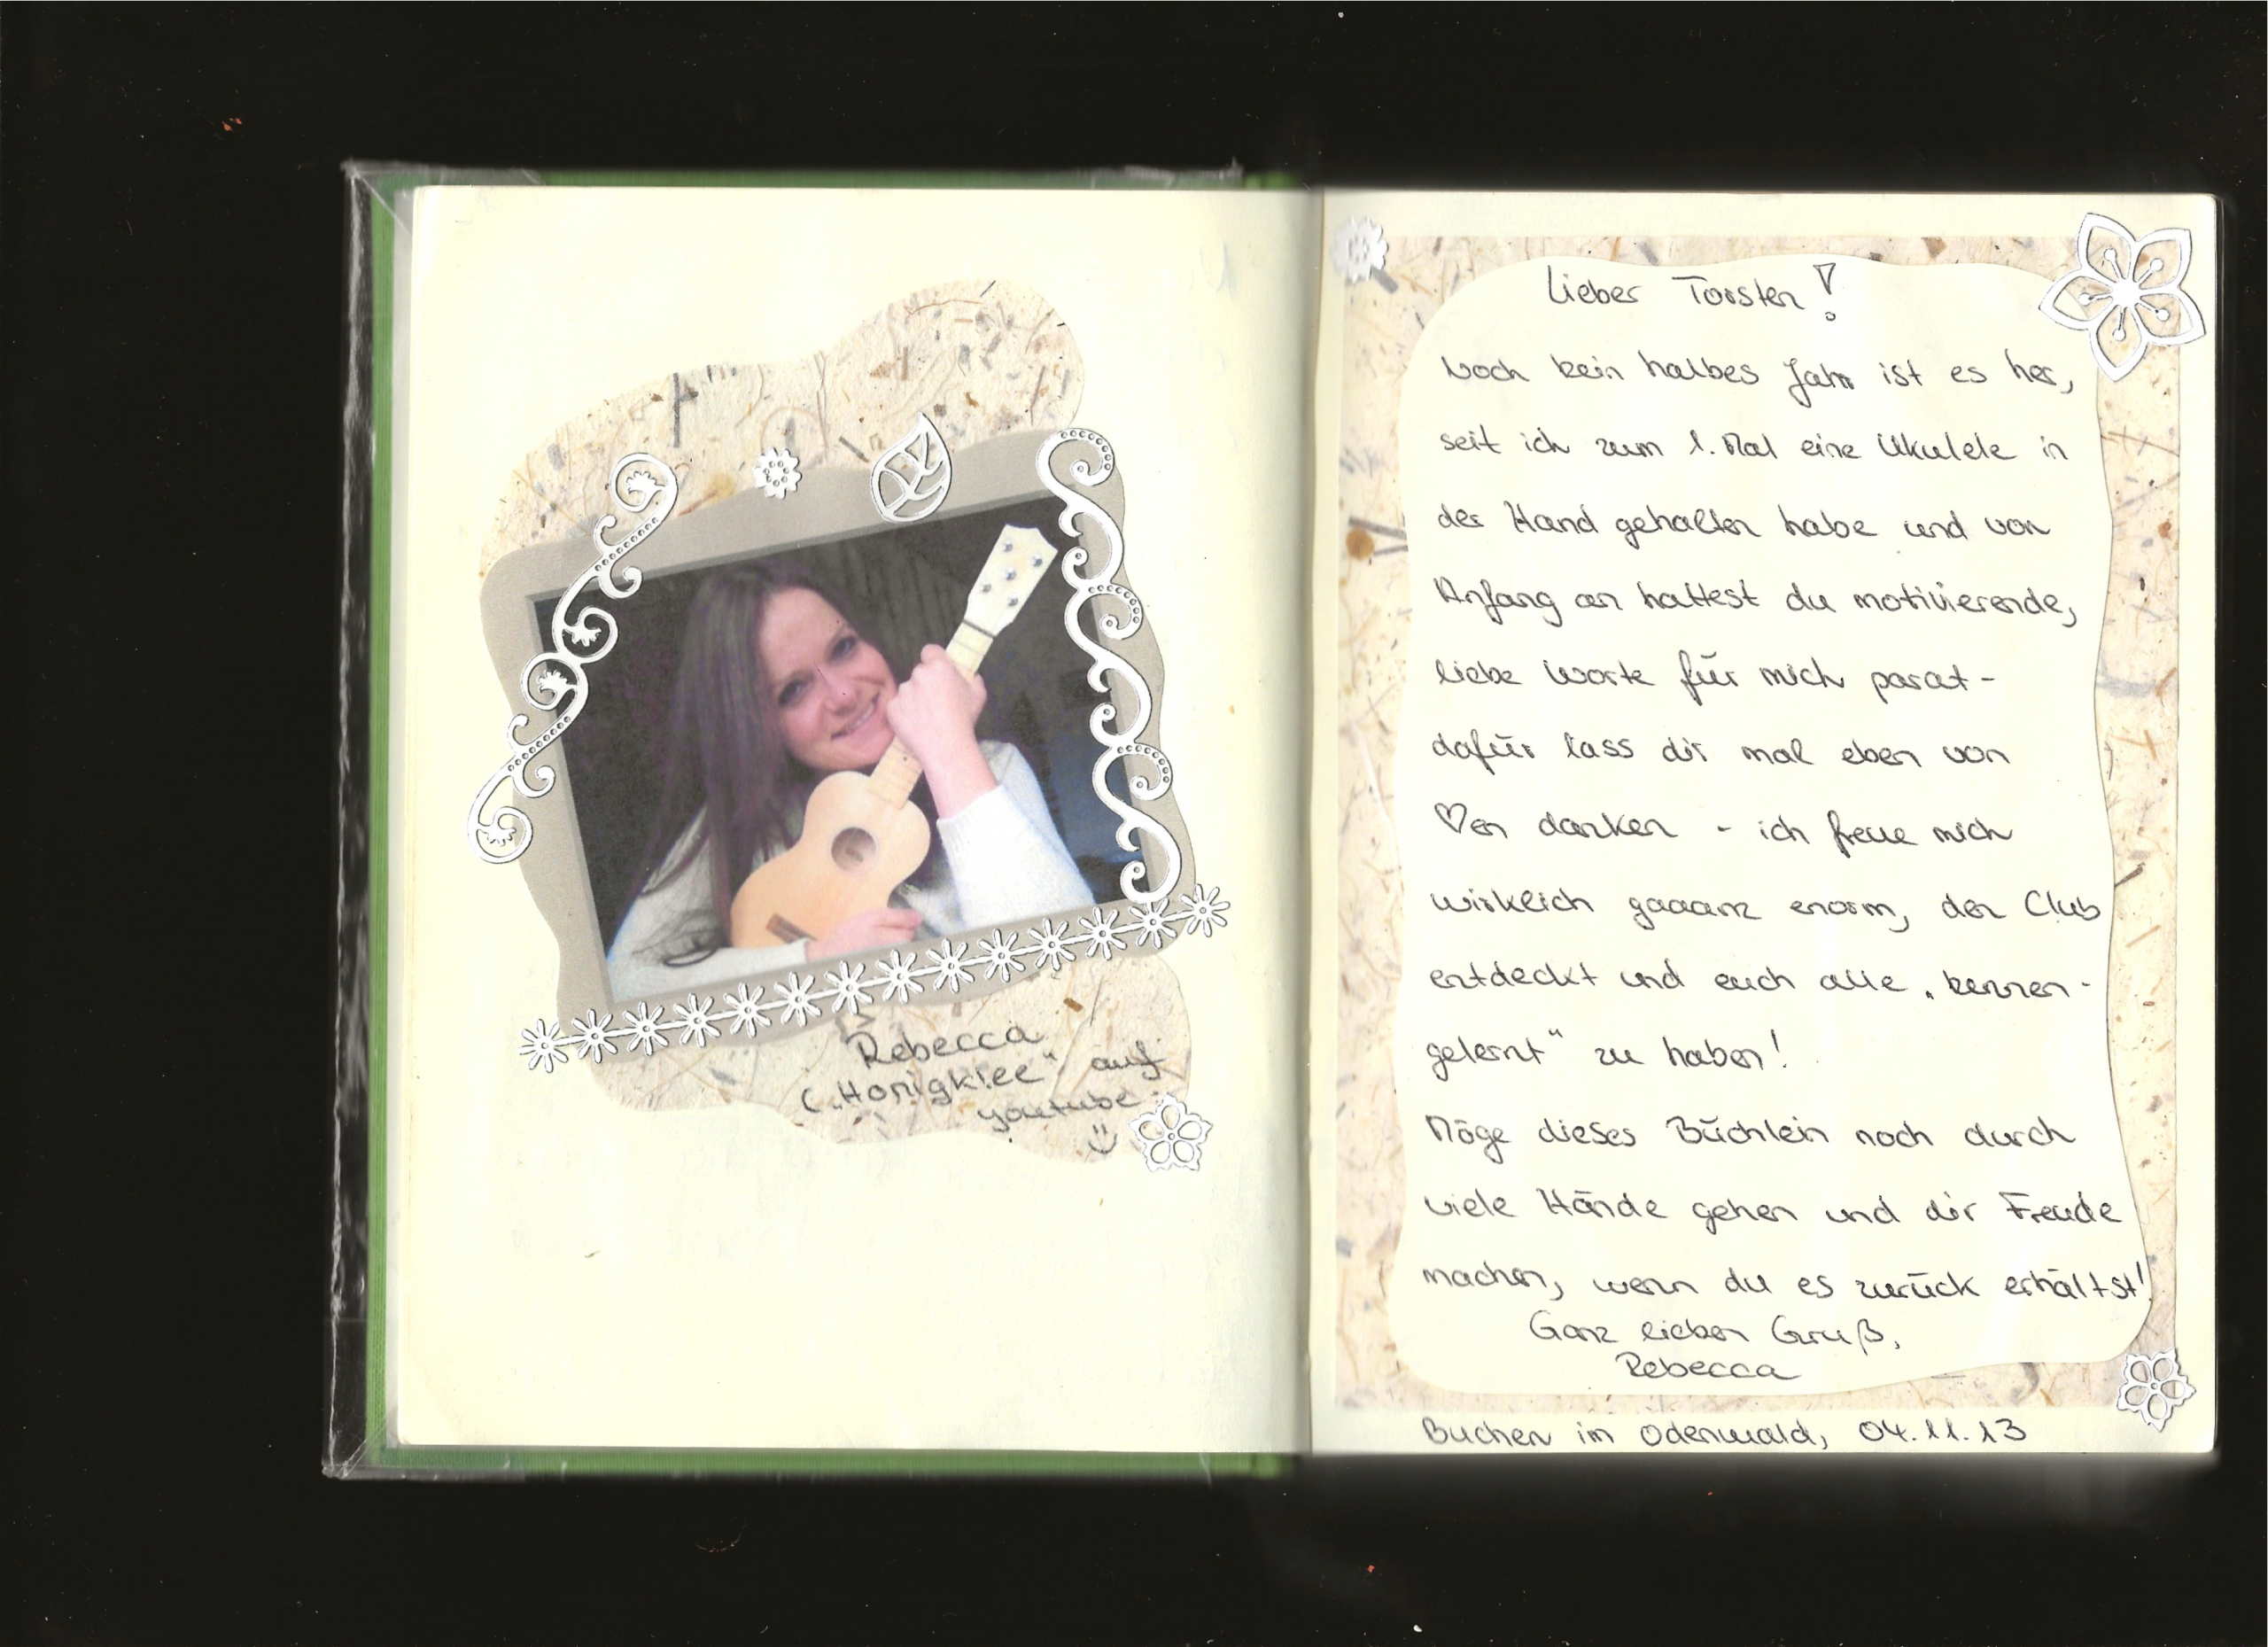 Rebecca
(„Honigklee" auf
youtube
Lieber Torsten!
Noch kein halbes Jahr ist es her,
seit ich zum 1. Mal eine Ukulele in
der Hand gehalten habe und von
Anfang an hattest du motivierende,
liebe Worte für mich parat -
dafür lass dir mal eben von
♡en danken - ich freue mich
wirklich gaaanz enorm, den Club
entdeckt und euch alle „kennen-
gelernt" zu haben!
Möge dieses Büchlein noch durch
viele Hände gehen und dir Freude
machen, wenn du es zurück erhältst!
Ganz lieben Gruß,
Rebecca
Buchen im Odenwald, 04.11.13